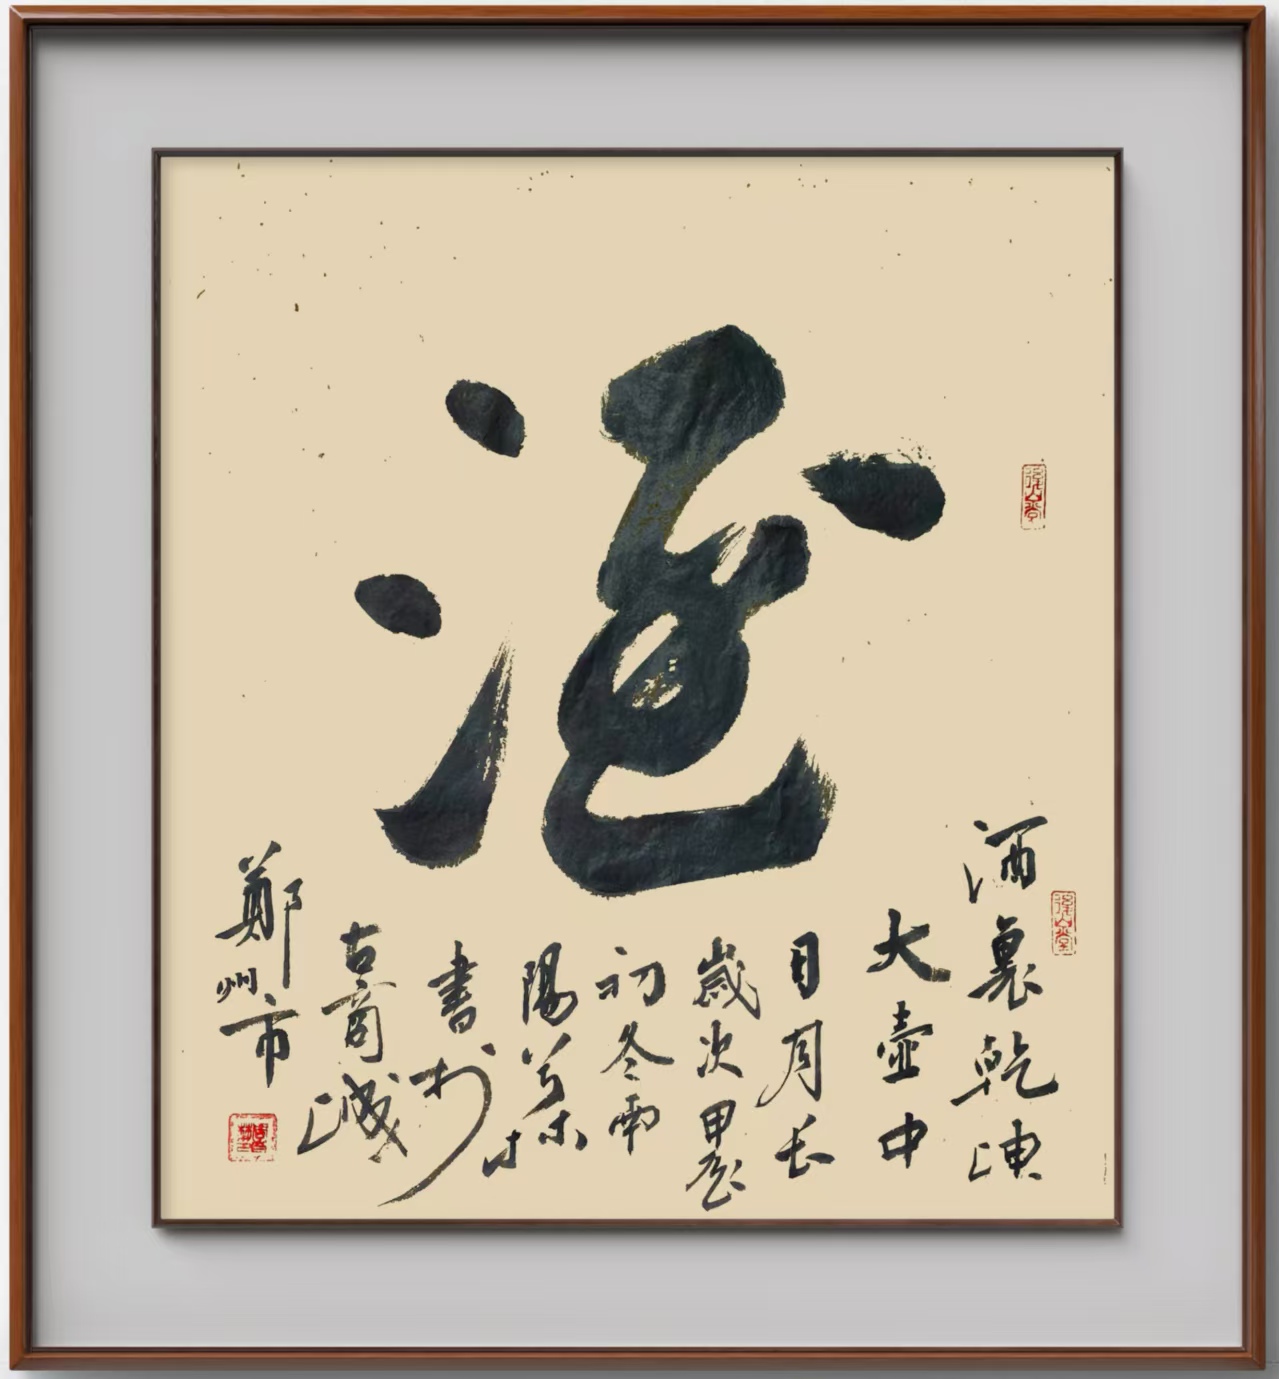 酒
酒裏乾坤
大壺中
日月长
歲次甲辰
初冬雨
陽
書於
古商城
鄭州市